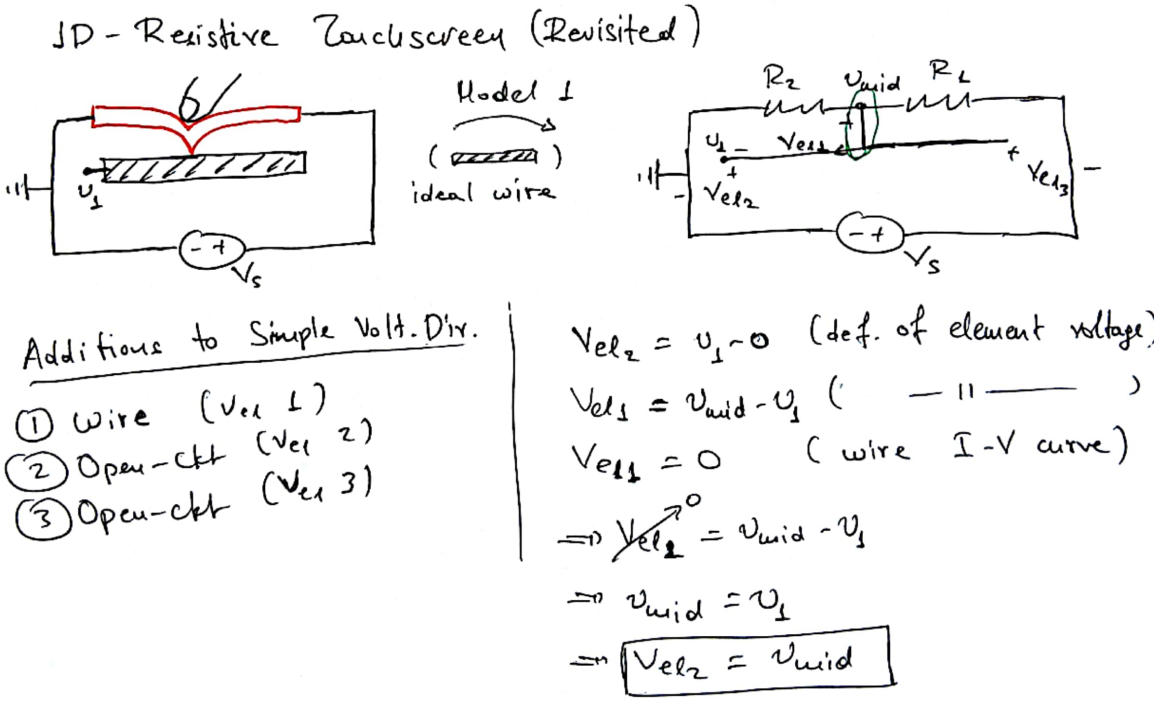 1D - Resistive Touchscreen (Revisited)
u1
- +
Vs
Model 1
( )
ideal wire
R2 Umid R1
u1 - Vel1 + +
+ Vel2 - Vel3 -
- +
Vs
Additions to Simple Volt. Div.
① Wire (Vel 1)
② Open-ckt (Vel 2)
③ Open-ckt (Vel 3)
Vel2 = u1 - 0 (def. of element voltage)
Vel1 = Umid - u1 ( — 11 — )
Vel1 = 0 (wire I-V curve)
⇒ Vel1 0 = Umid - u1
⇒ Umid = u1
⇒ Vel2 = Umid